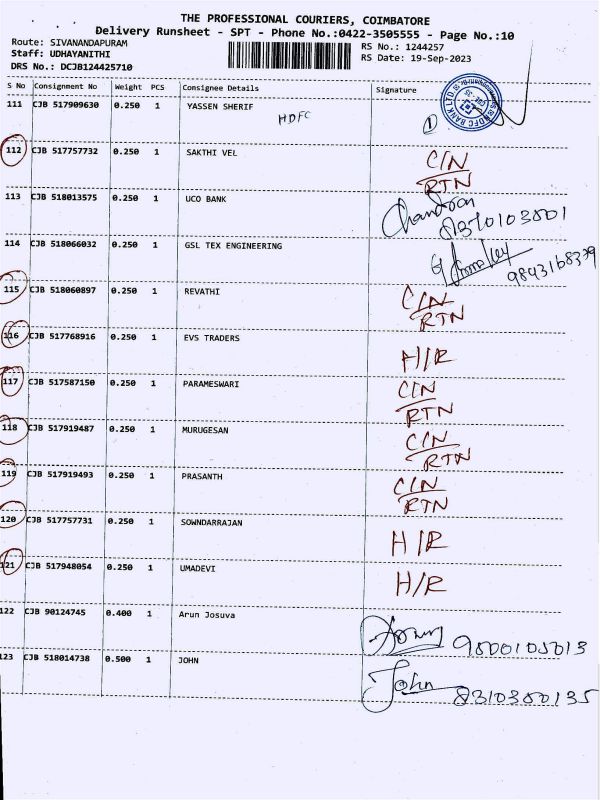 THE PROFESSIONAL COURIERS, COIMBATORE
Delivery Runsheet - SPT - Phone No.:0422-3505555 - Page No.:10
Route: SIVANANDAPURAM
Staff: UDHAYANITHI
DRS No.: DCJB124425710
RS No.: 1244257
RS Date: 19-Sep-2023
S No Consignment No Weight PCS Consignee Details Signature
111 CJB 517909630 0.250 1 YASSEN SHERIF
HDFC ①
112 CJB 517757732 0.250 1 SAKTHI VEL C/N
RTN
113 CJB 518013575 0.250 1 UCO BANK Chandran
8370103801
114 CJB 518066032 0.250 1 GSL TEX ENGINEERING
9843168379
115 CJB 518060897 0.250 1 REVATHI C/N
RTN
116 CJB 517768916 0.250 1 EVS TRADERS H/R
117 CJB 517587150 0.250 1 PARAMESWARI C/N
RTN
118 CJB 517919487 0.250 1 MURUGESAN C/N
RTN
119 CJB 517919493 0.250 1 PRASANTH C/N
RTN
120 CJB 517757731 0.250 1 SOWNDARRAJAN H/R
121 CJB 517948054 0.250 1 UMADEVI H/R
122 CJB 90124745 0.400 1 Arun Josuva 9800105013
123 CJB 518014738 0.500 1 JOHN John 8310380135